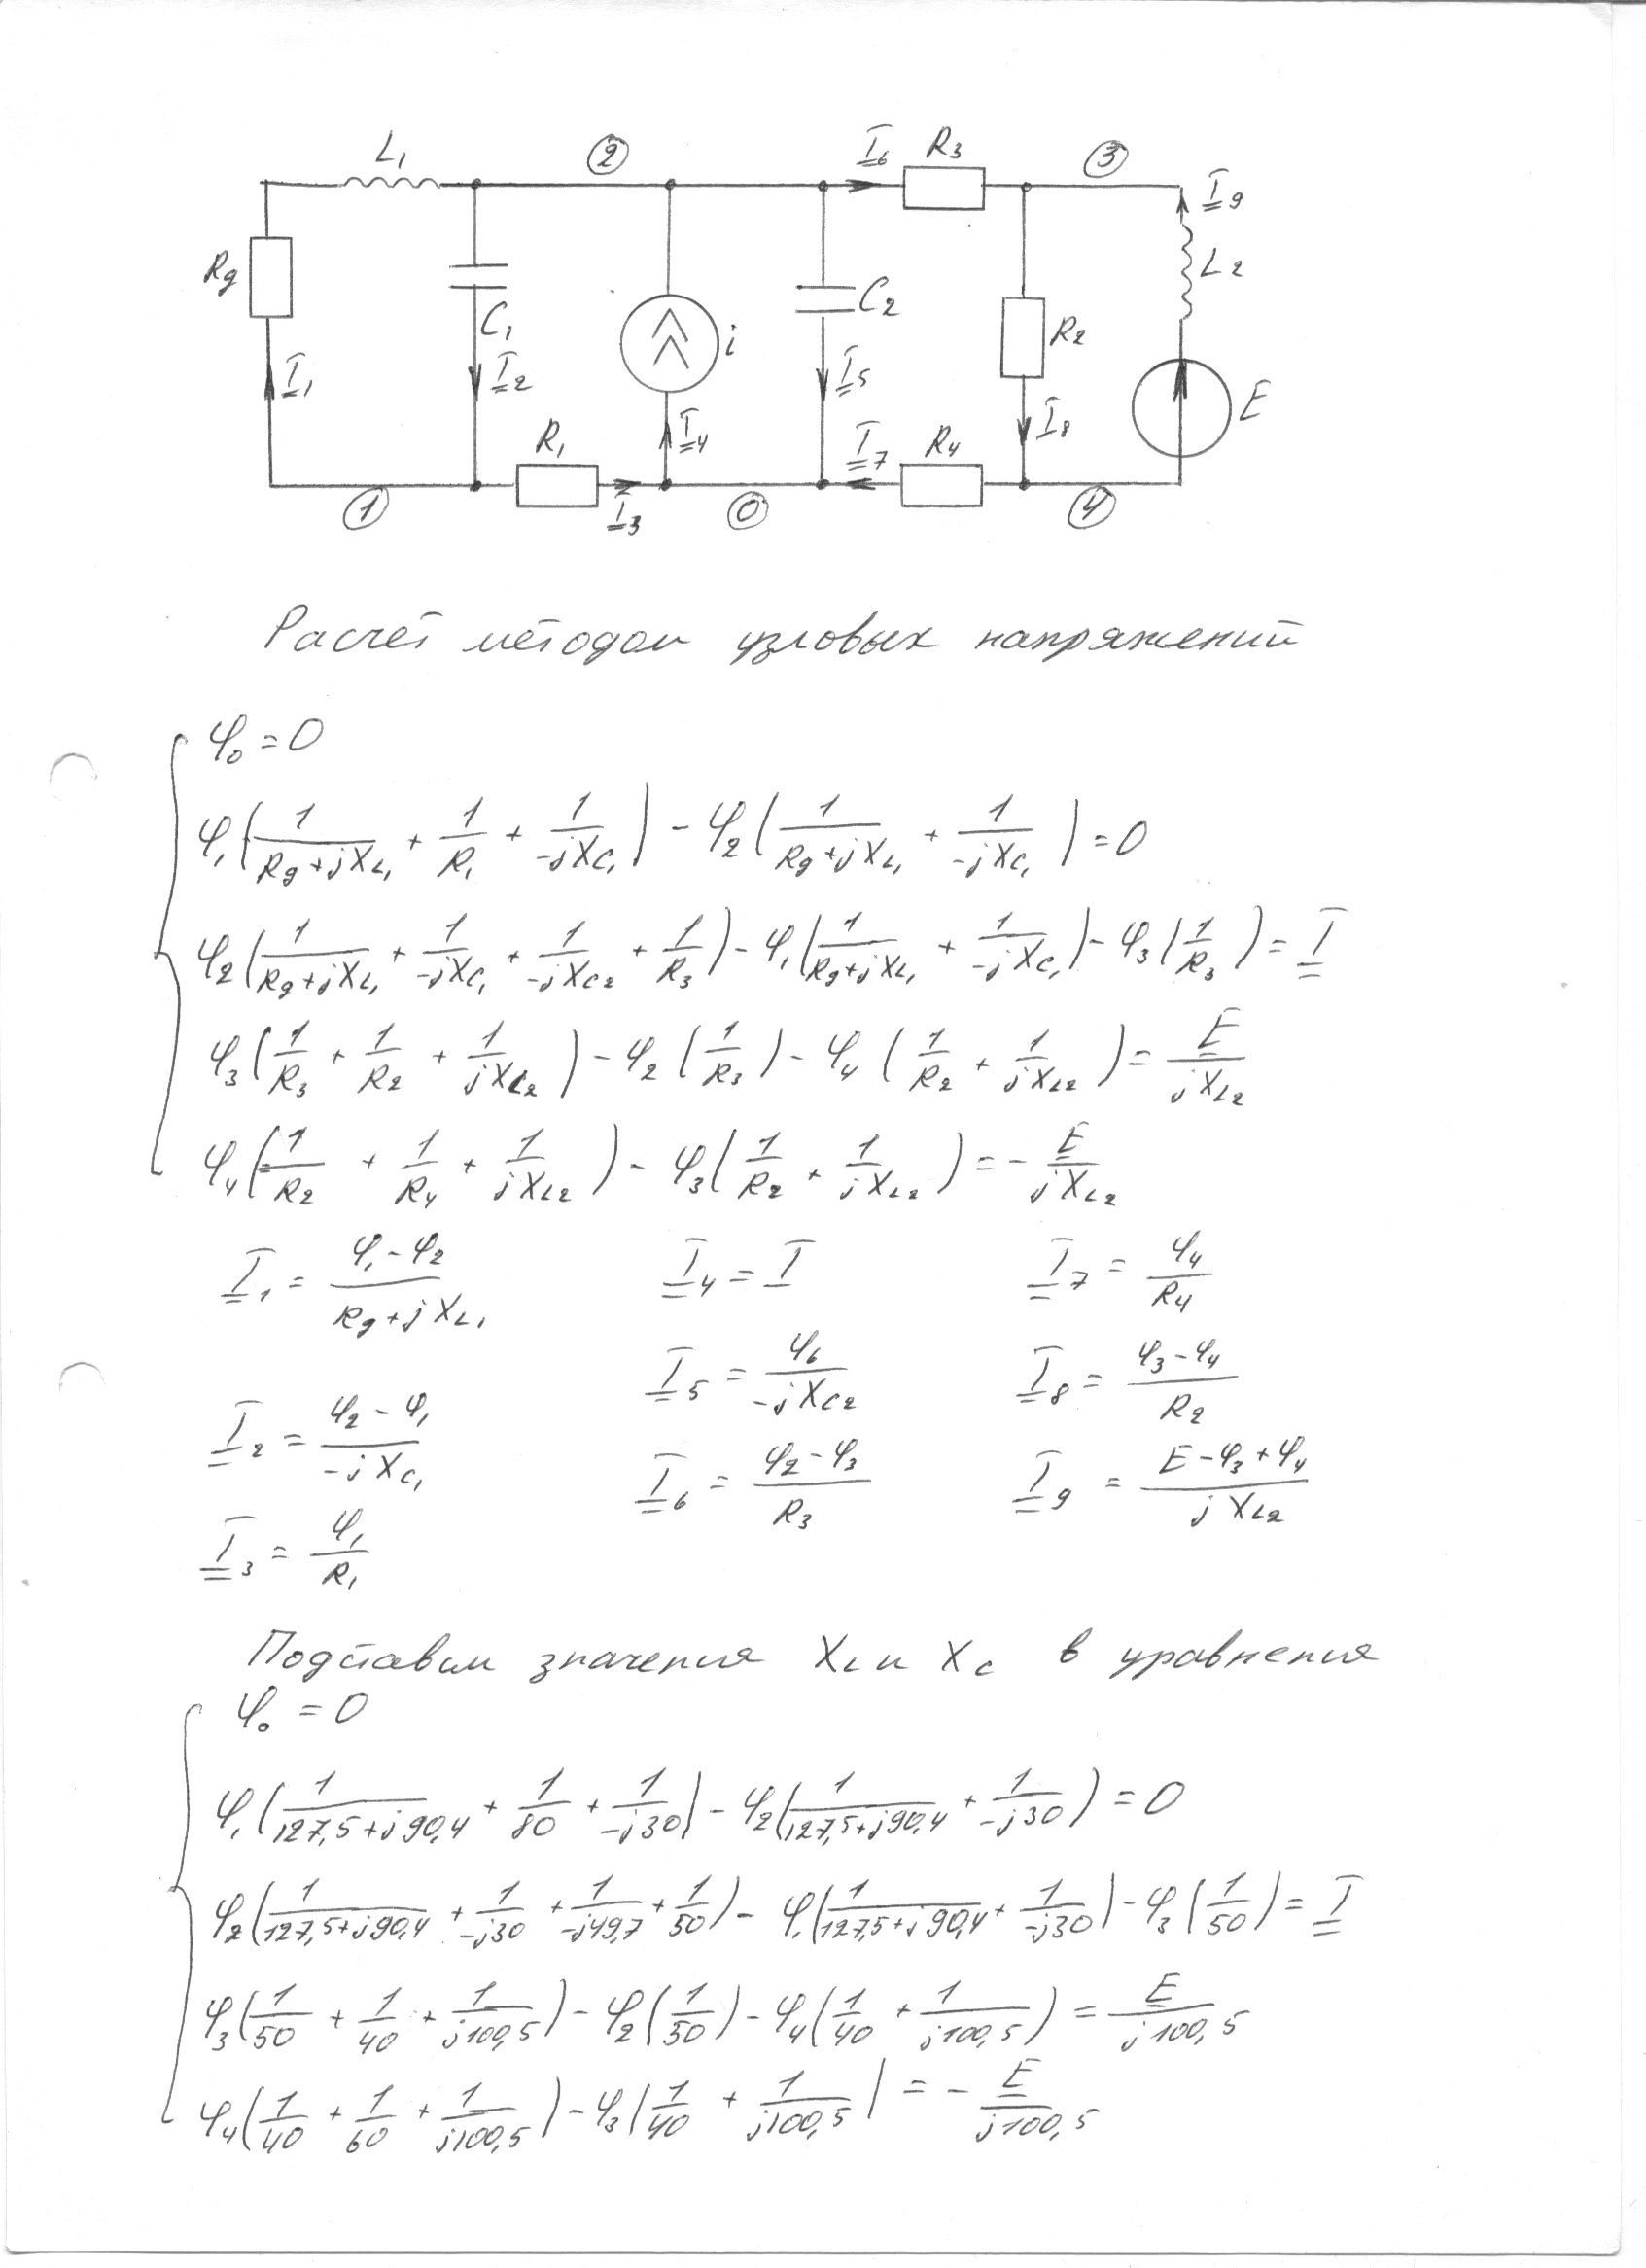 L₁ ② I̲₆ R₃ ③
I̲₉
Rg C₁ i C₂ R₂ L₂
I̲₁ I̲₂ I̲₄ I̲₅ I̲₈ E
R₁ I̲₇ R₄
① I̲₃ ⓪ ④
Расчёт методом узловых напряжений
φ₀ = 0
φ₁(1/(Rg+jX_L₁) + 1/R₁ + 1/(-jX_C₁)) - φ₂(1/(Rg+jX_L₁) + 1/(-jX_C₁)) = 0
φ₂(1/(Rg+jX_L₁) + 1/(-jX_C₁) + 1/(-jX_C₂) + 1/R₃) - φ₁(1/(Rg+jX_L₁) + 1/(-jX_C₁)) - φ₃(1/R₃) = I̲
φ₃(1/R₃ + 1/R₂ + 1/(jX_L₂)) - φ₂(1/R₃) - φ₄(1/R₂ + 1/(jX_L₂)) = E/(jX_L₂)
φ₄(1/R₂ + 1/R₄ + 1/(jX_L₂)) - φ₃(1/R₂ + 1/(jX_L₂)) = - E/(jX_L₂)
I̲₁ = (φ₁-φ₂)/(Rg+jX_L₁) I̲₄ = I I̲₇ = φ₄/R₄
I̲₂ = (φ₂-φ₁)/(-jX_C₁) I̲₅ = φ₆/(-jX_C₂) I̲₈ = (φ₃-φ₄)/R₂
I̲₃ = φ₁/R₁ I̲₆ = (φ₂-φ₃)/R₃ I̲₉ = (E-φ₃+φ₄)/(jX_L₂)
Подставим значения X_L и X_C в уравнения
φ₀ = 0
φ₁(1/(127,5+j90,4) + 1/80 + 1/(-j30)) - φ₂(1/(127,5+j90,4) + 1/(-j30)) = 0
φ₂(1/(127,5+j90,4) + 1/(-j30) + 1/(-j49,7) + 1/50) - φ₁(1/(127,5+j90,4) + 1/(-j30)) - φ₃(1/50) = I̲
φ₃(1/50 + 1/40 + 1/(j100,5)) - φ₂(1/50) - φ₄(1/40 + 1/(j100,5)) = E/(j100,5)
φ₄(1/40 + 1/60 + 1/(j100,5)) - φ₃(1/40 + 1/(j100,5)) = - E/(j100,5)